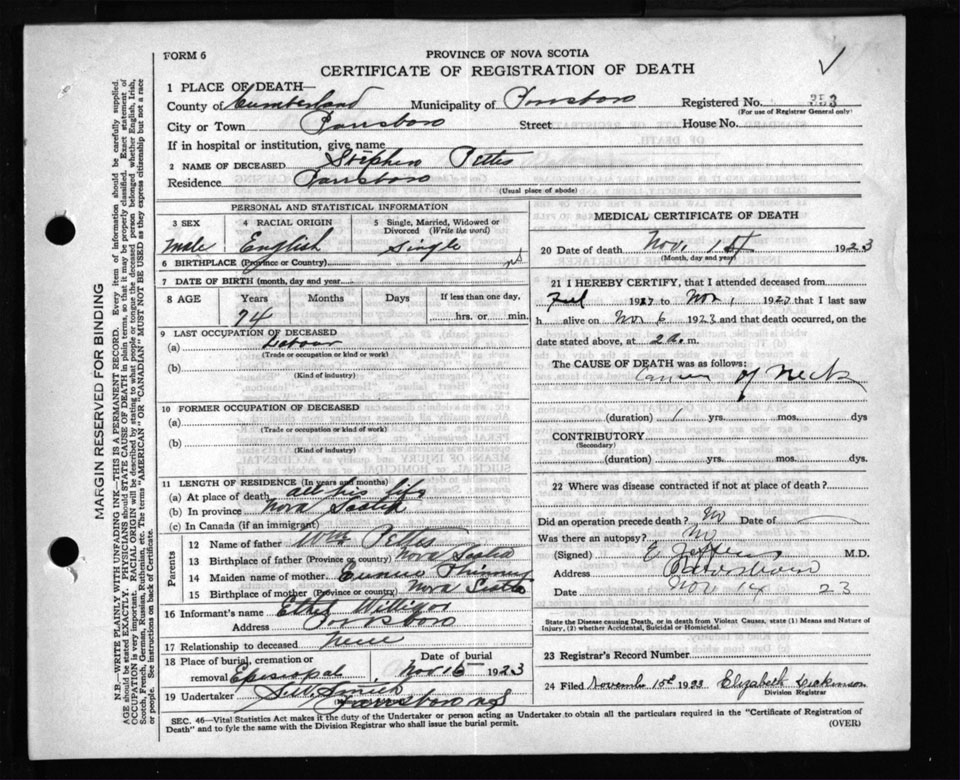 FORM 6
PROVINCE OF NOVA SCOTIA
CERTIFICATE OF REGISTRATION OF DEATH
1 PLACE OF DEATH—
County of Cumberland Municipality of Parrsboro Registered No. 353
(For use of Registrar General only)
City or Town Parrsboro Street House No.
If in hospital or institution, give name
2 NAME OF DECEASED Stephen Pettes
Residence Parrsboro
(Usual place of abode)
PERSONAL AND STATISTICAL INFORMATION
3 SEX 4 RACIAL ORIGIN 5 Single, Married, Widowed or Divorced (Write the word)
Male English Single
6 BIRTHPLACE (Province or Country) NS
7 DATE OF BIRTH (month, day and year)
8 AGE Years Months Days If less than one day,
74 hrs. or min.
9 LAST OCCUPATION OF DECEASED
(a) Labour
(Trade or occupation or kind or work)
(b)
(Kind of industry)
10 FORMER OCCUPATION OF DECEASED
(a)
(Trade or occupation or kind of work)
(b)
(Kind of industry)
11 LENGTH OF RESIDENCE (In years and months)
(a) At place of death all his life
(b) In province Nova Scotia
(c) In Canada (if an immigrant)
Parents
12 Name of father Wm Pettes
13 Birthplace of father (Province or country) Nova Scotia
14 Maiden name of mother Eunice Phinney
15 Birthplace of mother (Province or country) Nova Scotia
16 Informant's name Ethel
Address Parrsboro
17 Relationship to deceased niece
18 Place of burial, cremation or removal Episcopal Date of burial Nov 16 1923
19 Undertaker Smith
Parrsboro NS
MEDICAL CERTIFICATE OF DEATH
20 Date of death Nov. 1st 1923
(Month, day and year)
21 I HEREBY CERTIFY, that I attended deceased from
19 to Nov 1 192 that I last saw
h alive on Nov 6 1923 and that death occurred, on
date stated above, at 2 a. m.
The CAUSE OF DEATH was as follows:
Cancer of Neck
(duration) 1 yrs. mos. dys
CONTRIBUTORY
(Secondary)
(duration) yrs. mos. dys.
22 Where was disease contracted if not at place of death?
Did an operation precede death? No Date of
Was there an autopsy? No
(Signed) E Jeffers M.D.
Address Parrsboro
Date Nov 14 23
State the Disease causing Death, or in death from Violent Causes, state (1) Means and Nature of
Injury, (2) whether Accidental, Suicidal or Homicidal.
23 Registrar's Record Number
24 Filed November 15th 1923 Elizabeth Dickinson
Division Registrar
SEC. 46—Vital Statistics Act makes it the duty of the Undertaker or person acting as Undertaker to obtain all the particulars required in the "Certificate of Registration of
Death" and to fyle the same with the Division Registrar who shall issue the burial permit. (OVER)
MARGIN RESERVED FOR BINDING
N.B.—WRITE PLAINLY WITH UNFADING INK—THIS IS A PERMANENT RECORD. Every item of information should be carefully supplied.
AGE should be stated EXACTLY. PHYSICIANS should STATE CAUSE OF DEATH in plain terms, so that it may be properly classified. Exact statement of
OCCUPATION is very important. RACIAL ORIGIN will be described by stating to what people or tongue the deceased person belonged whether English, Irish,
Scotch, French, German, Russian, Ruthenian, etc. The terms "AMERICAN" OR "CANADIAN" MUST NOT BE USED as they express citizenship but not a race
or people. See instructions on back of Certificate.